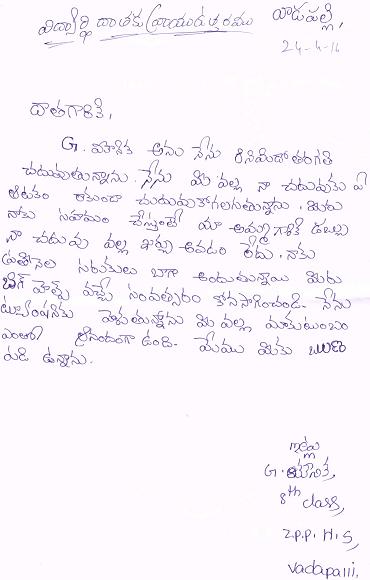 విద్యార్థి దాతకు వ్రాయు ఉత్తరము వాడపల్లి,
24-4-16
దాతగారికి,
G. మౌనిక అను నేను ఎనిమిదో తరగతి
చదువుతున్నాను. నేను మీ వల్ల నా చదువుకు ఏ
ఆటకం రాకుండా చదువుకోగలుగుతున్నాను. మీరు
నాకు సహాయం చేస్తుంటే మా అమ్మ గారికి డబ్బులు
నా చదువు వల్ల ఖర్చు అవడం లేదు. నాకు
ప్రతినెల సరుకులు బాగా అందుతున్నాయి మీరు
వచ్చే సంవత్సరం కొనసాగించండి. నేను
ట్యూషన్‌కు వెళ్తున్నాను మీ వల్ల మాకుటుంబం
ఎంతో ఆనందంగా ఉంది. మేము మీకు ఋణ
పడి ఉన్నాను.
ఇట్లు
G.
8th class,
Z.P.P. H.S,
Vadapalli.